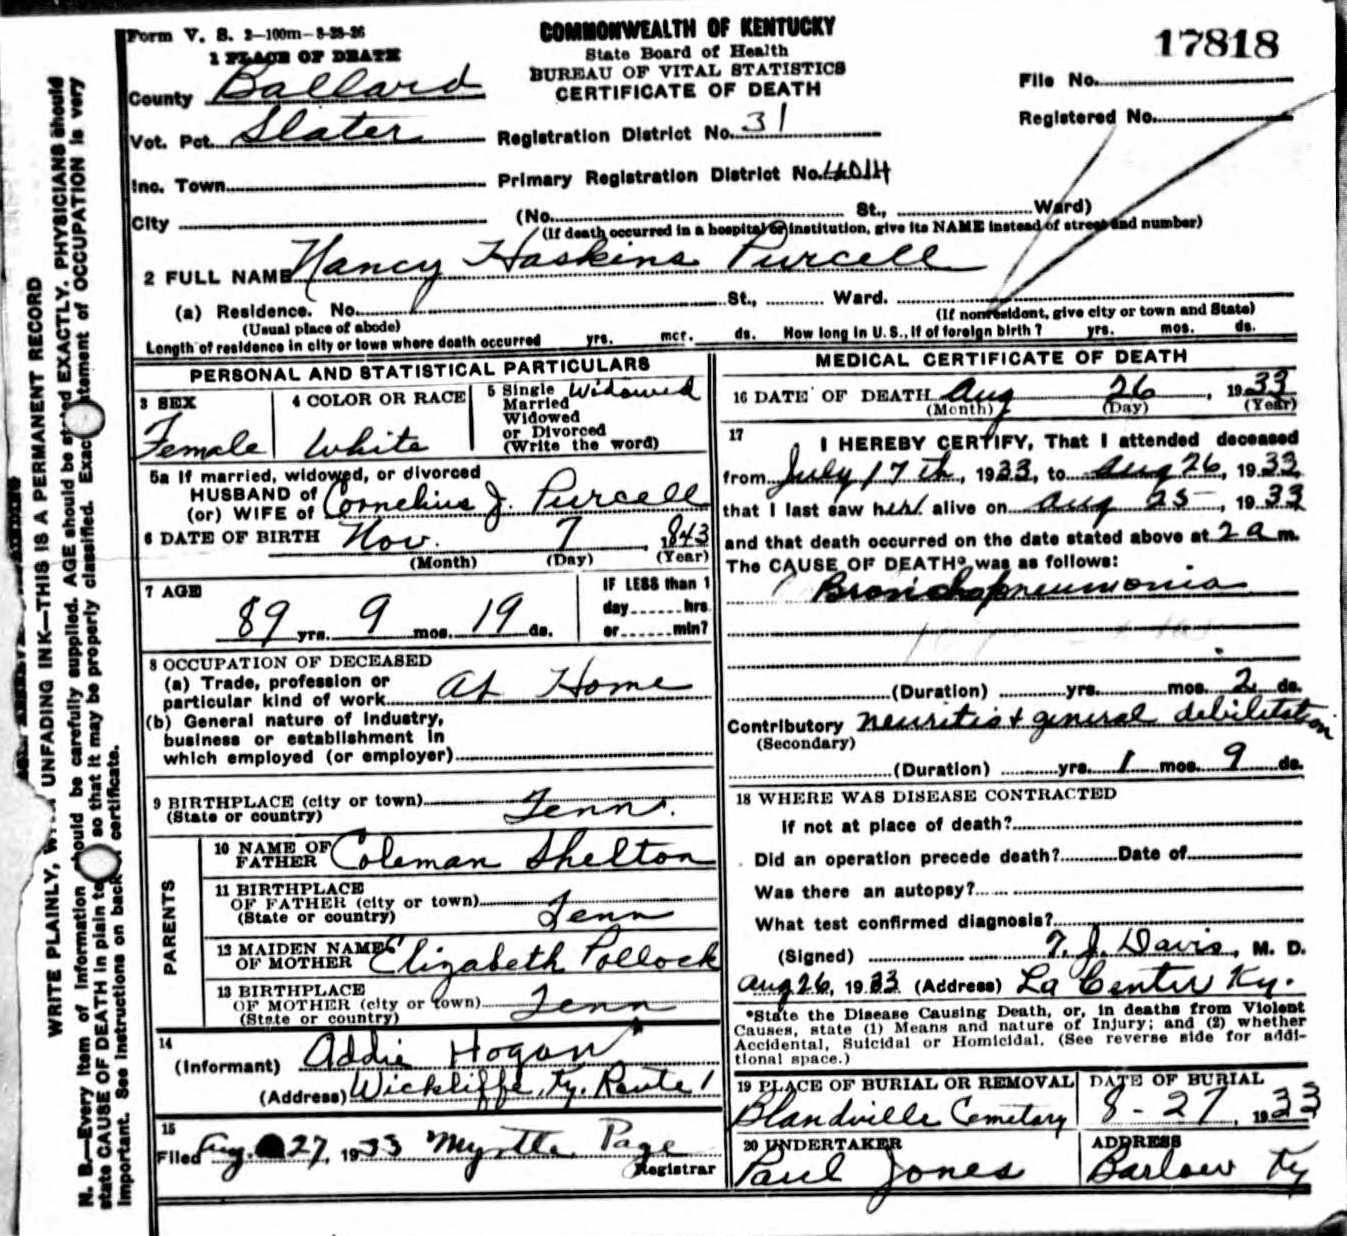 Form V. S. 2—100m—8-28-26
COMMONWEALTH OF KENTUCKY
State Board of Health
BUREAU OF VITAL STATISTICS
CERTIFICATE OF DEATH
17818
File No.
Registered No.
1 PLACE OF DEATH
County Ballard
Vot. Pct. Slater
Registration District No. 31
Inc. Town
Primary Registration District No. 4014
City
(No. St., Ward)
(If death occurred in a hospital or institution, give its NAME instead of street and number)
2 FULL NAME Nancy Haskins Purcell
(a) Residence. No. St., Ward.
(Usual place of abode)
(If nonresident, give city or town and State)
Length of residence in city or town where death occurred yrs. mos. ds. How long in U. S., if of foreign birth? yrs. mos. ds.
PERSONAL AND STATISTICAL PARTICULARS
3 SEX
Female
4 COLOR OR RACE
White
5 Single Widowed
Married
Widowed
or Divorced
(Write the word)
5a If married, widowed, or divorced
HUSBAND of
(or) WIFE of Cornelius J. Purcell
6 DATE OF BIRTH Nov. 7, 1843
(Month) (Day) (Year)
7 AGE
89 yrs. 9 mos. 19 ds.
IF LESS than 1
day hrs.
or min?
8 OCCUPATION OF DECEASED
(a) Trade, profession or
particular kind of work At Home
(b) General nature of Industry,
business or establishment in
which employed (or employer)
9 BIRTHPLACE (city or town)
(State or country) Tenn.
PARENTS
10 NAME OF
FATHER Coleman Shelton
11 BIRTHPLACE
OF FATHER (city or town)
(State or country) Tenn
12 MAIDEN NAME
OF MOTHER Elizabeth Pollock
13 BIRTHPLACE
OF MOTHER (city or town)
(State or country) Tenn
14
(Informant) Addie Hogan
(Address) Wickliffe, Ky. Route 1
15
Filed Aug. 27, 1933 Myrtle Page
Registrar
MEDICAL CERTIFICATE OF DEATH
16 DATE OF DEATH Aug 26, 1933
(Month) (Day) (Year)
17
I HEREBY CERTIFY, That I attended deceased
from July 17th, 1933, to Aug 26, 1933
that I last saw her alive on Aug 25, 1933
and that death occurred on the date stated above at 2 a m.
The CAUSE OF DEATH* was as follows:
Bronchopneumonia
(Duration) yrs. mos. 2 ds.
Contributory neuritis + general debilitation
(Secondary)
(Duration) yrs. 1 mos 9 ds.
18 WHERE WAS DISEASE CONTRACTED
If not at place of death?
Did an operation precede death? Date of
Was there an autopsy?
What test confirmed diagnosis?
(Signed) T. J. Davis, M. D.
Aug 26, 1933 (Address) La Center Ky.
*State the Disease Causing Death, or, in deaths from Violent
Causes, state (1) Means and nature of Injury; and (2) whether
Accidental, Suicidal or Homicidal. (See reverse side for addi-
tional space.)
19 PLACE OF BURIAL OR REMOVAL
Blandville Cemetary
DATE OF BURIAL
8-27, 1933
20 UNDERTAKER
Paul Jones
ADDRESS
Barlow Ky
WRITE PLAINLY, UNFADING INK—THIS IS A PERMANENT RECORD
N. B.—Every item of information should be carefully supplied. AGE should be stated EXACTLY. PHYSICIANS should
state CAUSE OF DEATH in plain so that it may be properly classified. Exact statement of OCCUPATION is very
important. See instructions on back certificate.